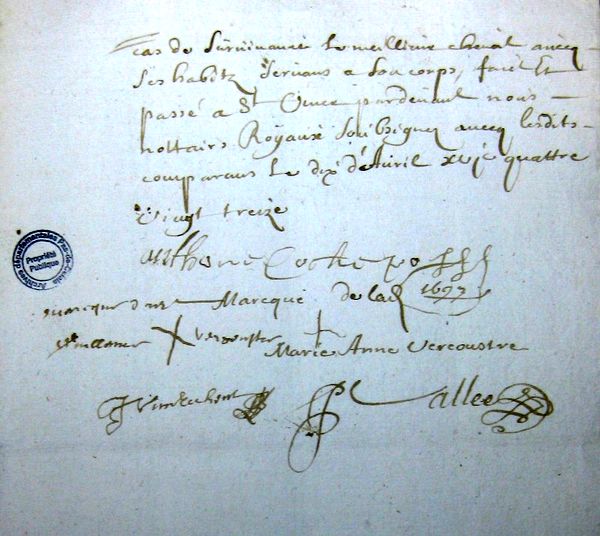 cas de surviuance le meillieur cheual auecq
ses habitz seruans a son corps, faict Et
passé a St Omer pardeuant nous
nottairs Royaux soubsignez auecq lesdits
comparans le dix d'Auril xvjc quattre
vingt treize
anthone Cocte
marcque Marcque de lad 1697
vercoustre Marie Anne Vercoustre
Vallee
Archives départementales Pas-de-Calais
Propriété
Publique